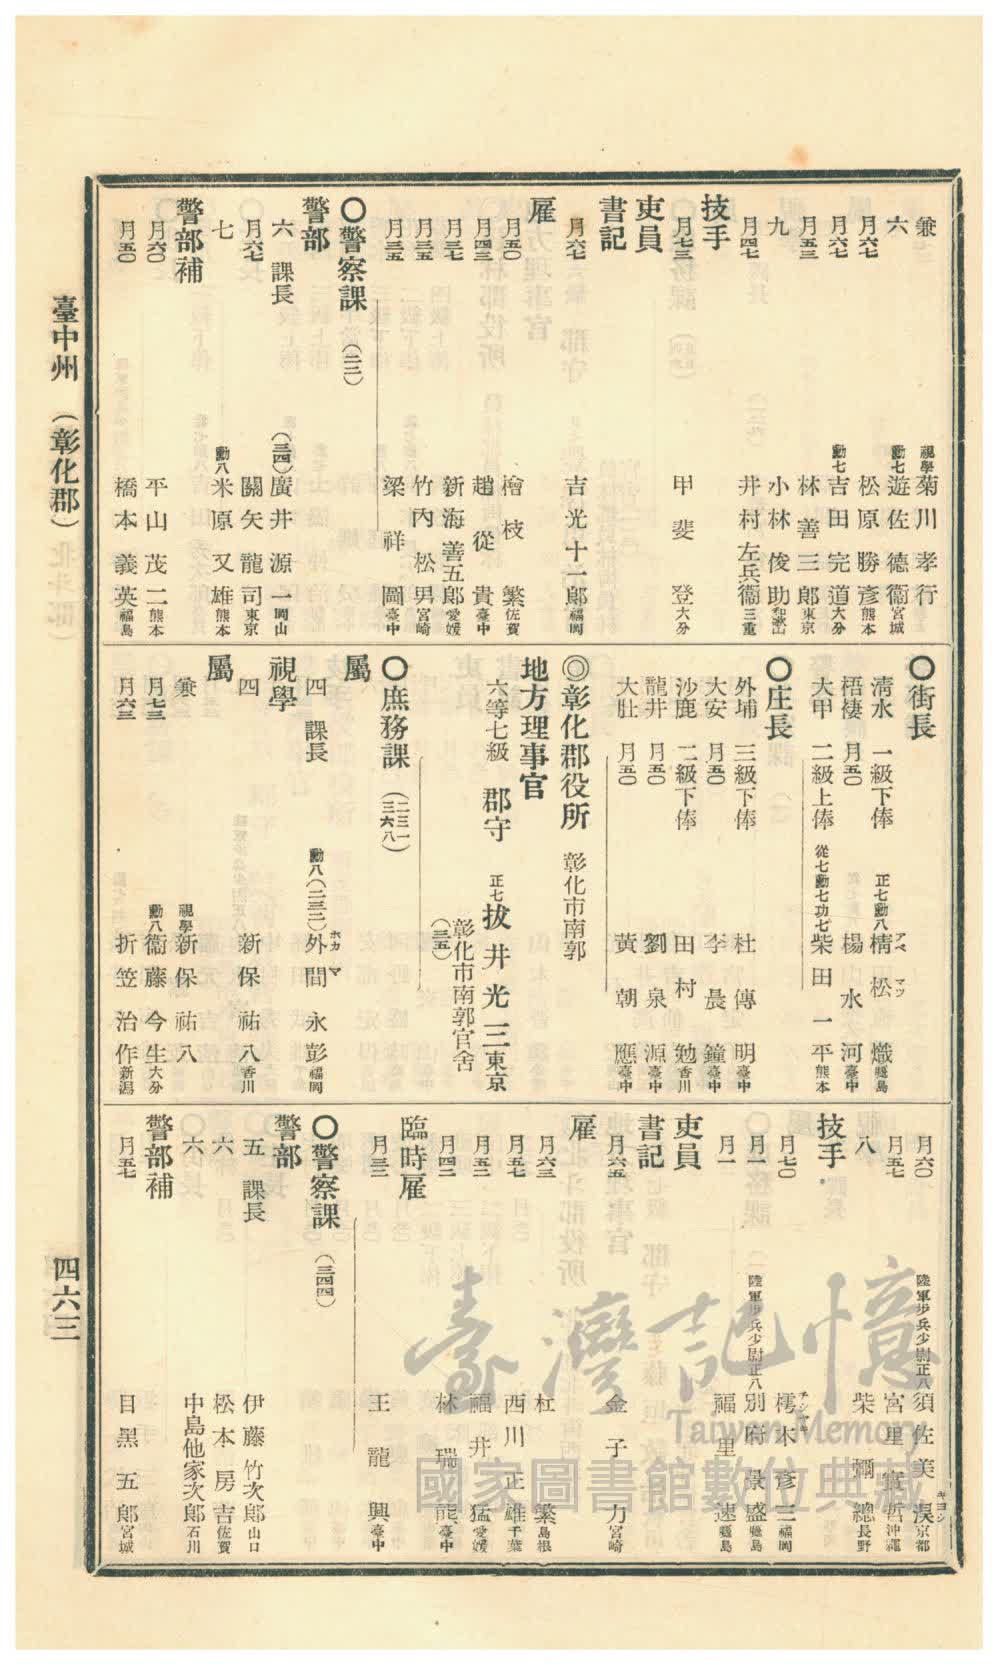 兼 視學 菊川孝行
六 勳七 遊佐德衞 宮城
月六七 松原勝彥 熊本
月六七 勳七 吉田完道 大分
月五三 林善三郎 東京
九 小林俊助 和歌山
月四七 井村左兵衞 三重
技手
月七三 甲斐登 大分
吏員
書記
月六七 吉光十一郎 福岡
雇
月五〇 檜枝繁 佐賀
月四三 趙從貴 臺中
月三七 新海善五郎 愛媛
月三五 竹內松男 宮崎
月三五 梁祥圖 臺中
〇警察課 (二三)
警部
六 課長 (三四) 廣井源一 岡山
月六七 關矢龍司 東京
七 勳八 米原又雄 熊本
警部補
月六〇 平山茂二 熊本
月五〇 橋本義英 福島
〇街長
淸水 一級下俸 正七勳八 楮松熾 福島
梧棲 月五〇 楊水河 臺中
大甲 二級上俸 從七勳七功七 柴田一平 熊本
〇庄長
外埔 三級下俸 杜傳明 臺中
大安 月五〇 李晨鐘 臺中
沙鹿 二級下俸 田村勉 香川
龍井 月五〇 劉泉源 臺中
大肚 月五〇 黃朝應 臺中
◎彰化郡役所 彰化市南郭
地方理事官
六等七級 郡守 正七 拔井光三 東京
彰化市南郭官舍
(三五)
〇庶務課 (二三一 三六八)
屬
四 課長 勳八(二三二) 外間永彭 福岡
ホカ マ
視學
四 新保祐八 香川
屬
兼 視學 新保祐八
月七三 勳八 衞藤今生 大分
月六三 折笠治作 新潟
月六〇 陸軍步兵少尉正八 須佐美淏 京都
キヨシ
月五七 宮里實哲 沖繩
八 柴彌總 長野
技手
月七〇 樗木彥三 福岡
月一 陸軍步兵少尉正八 別府景盛 福島
月一 福里連 福島
吏員
書記
月六五 金子力 宮崎
雇
月六三 杠繁 島根
月五七 西川正雄 千葉
月五二 福井猛 愛媛
月四二 林瑞熊 臺中
臨時雇
月三二 王龍興 臺中
〇警察課 (三四四)
警部
五 課長 伊藤竹次郎 山口
六 松本房吉 佐賀
六 中島他家次郎 石川
警部補
月五七 目黑五郎 宮城
臺中州 (彰化郡)
四六三
臺灣記憶
Taiwan Memory
國家圖書館數位典藏